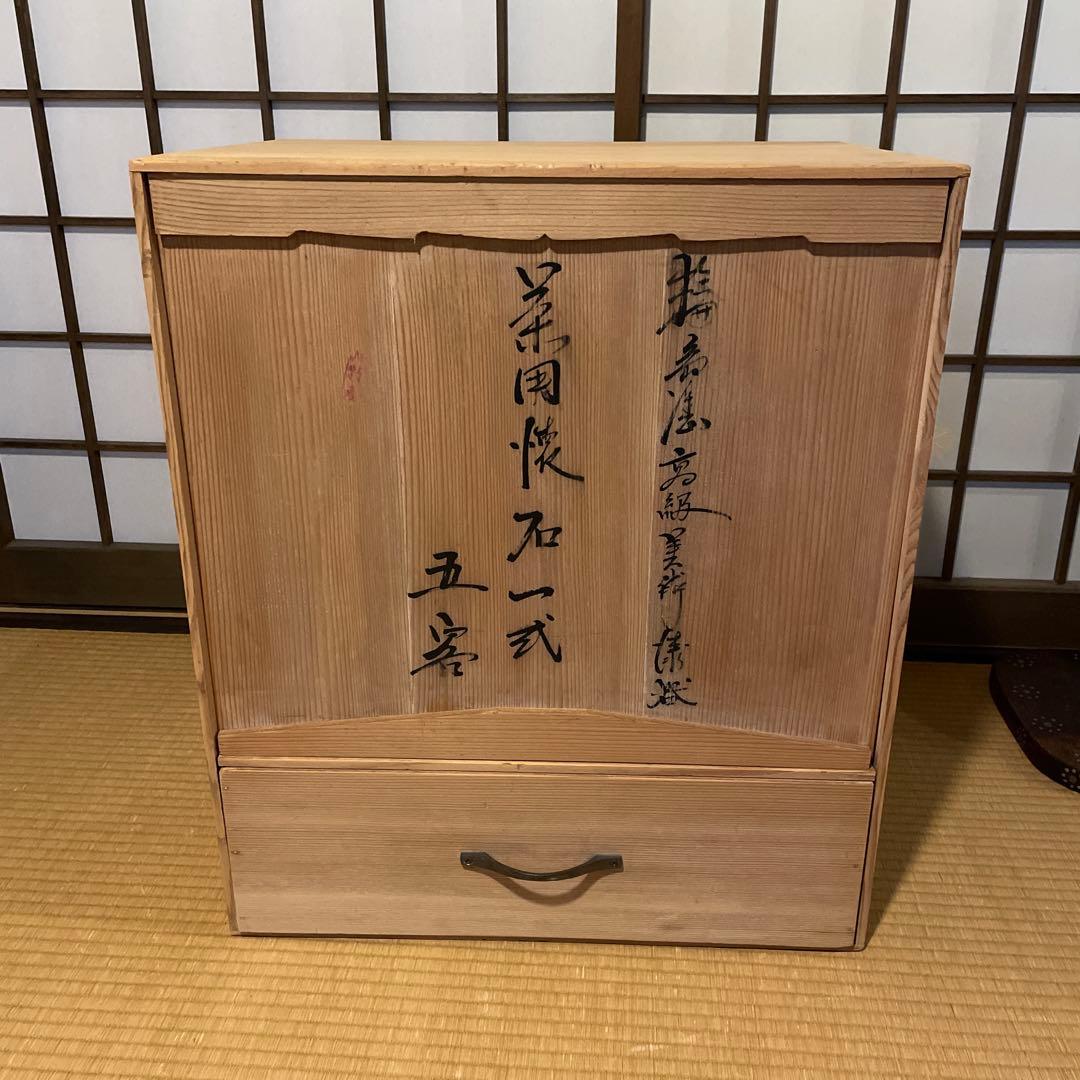 輪島塗高級美術漆器
茶用懐石一式
五客